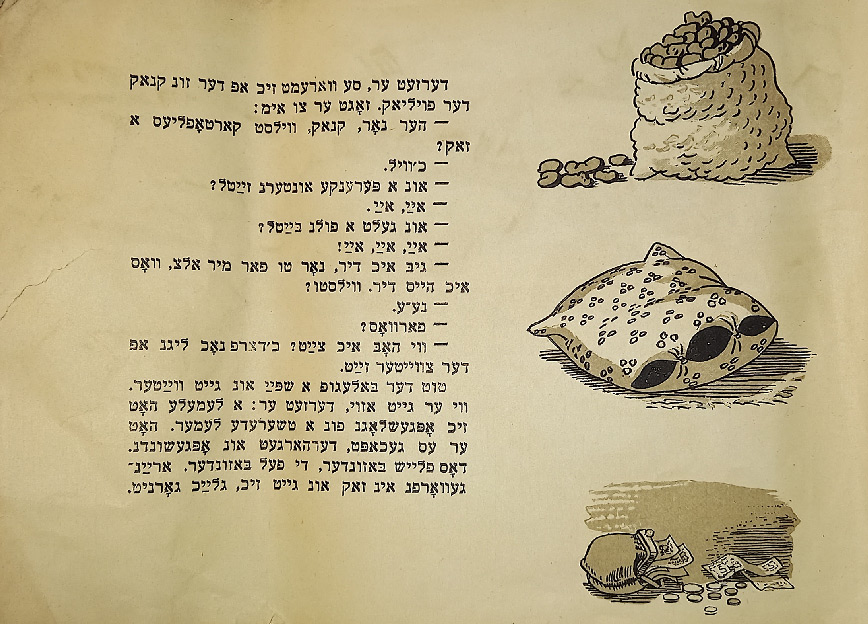 דערזעט ער, סע ווארעמט זיכ אפ דער זונ קנאק
דער פויליאק. זאָגט ער צו אימ:
— הער נאָר, קנאק, ווילסט קארטאָפליעס א
זאק?
— כ׳וויל.
— אונ א פּערענקע אונטערנ זײַטל?
— אײַ, אײַ.
— אונ געלט א פולנ בײַטל?
— אײַ, אײַ, אײַ!
— גיב איכ דיר, נאָר טו פאר מיר אלצ, וואָס
איכ הייס דיר. ווילסטו?
— נע־ע.
— פארוואָס?
— ווי האָב איכ צײַט? כ׳דארפ נאָכ ליגנ אפ
דער צווייטער זײַט.
טוט דער באלעגופ א שפּײַ אונ גייט ווײַטער.
ווי ער גייט אזוי, דערזעט ער: א לעמעלע האָט
זיכ אָפּגעשלאָגנ פונ א טשערעדע לעמער. האָט
ער עס געכאפּט, דערהארגעט אונ אָפּגעשונדנ.
דאָס פלייש באזונדער, די פעל באזונדער. ארײַנ־
געוואָרפנ אינ זאק אונ גייט זיכ, גלײַכ גאָרניט.